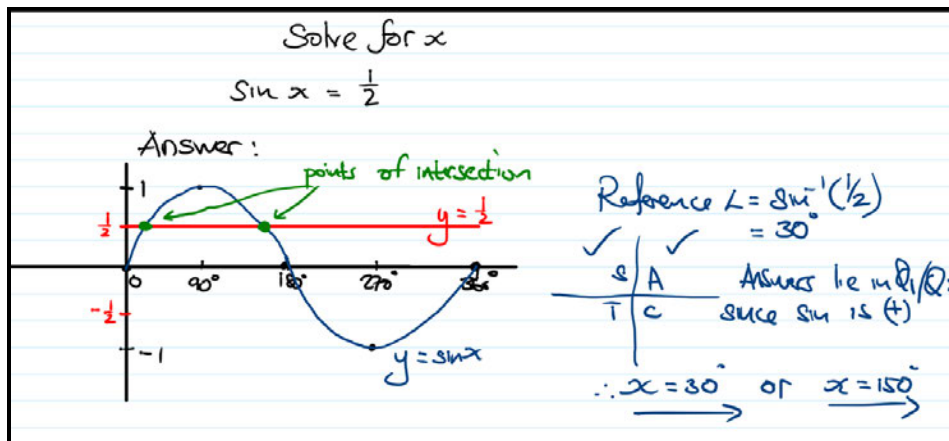 Solve for x
sin x = 1/2
Answer:
points of intersection
1
1/2
y = 1/2
0 90° 180° 270° 360°
-1/2
-1
y = sin x
Reference ∠ = sin⁻¹(1/2)
= 30°
✓ ✓
S A
T C
Answers lie in Q1/Q
since sin is (+)
∴ x = 30° or x = 150°